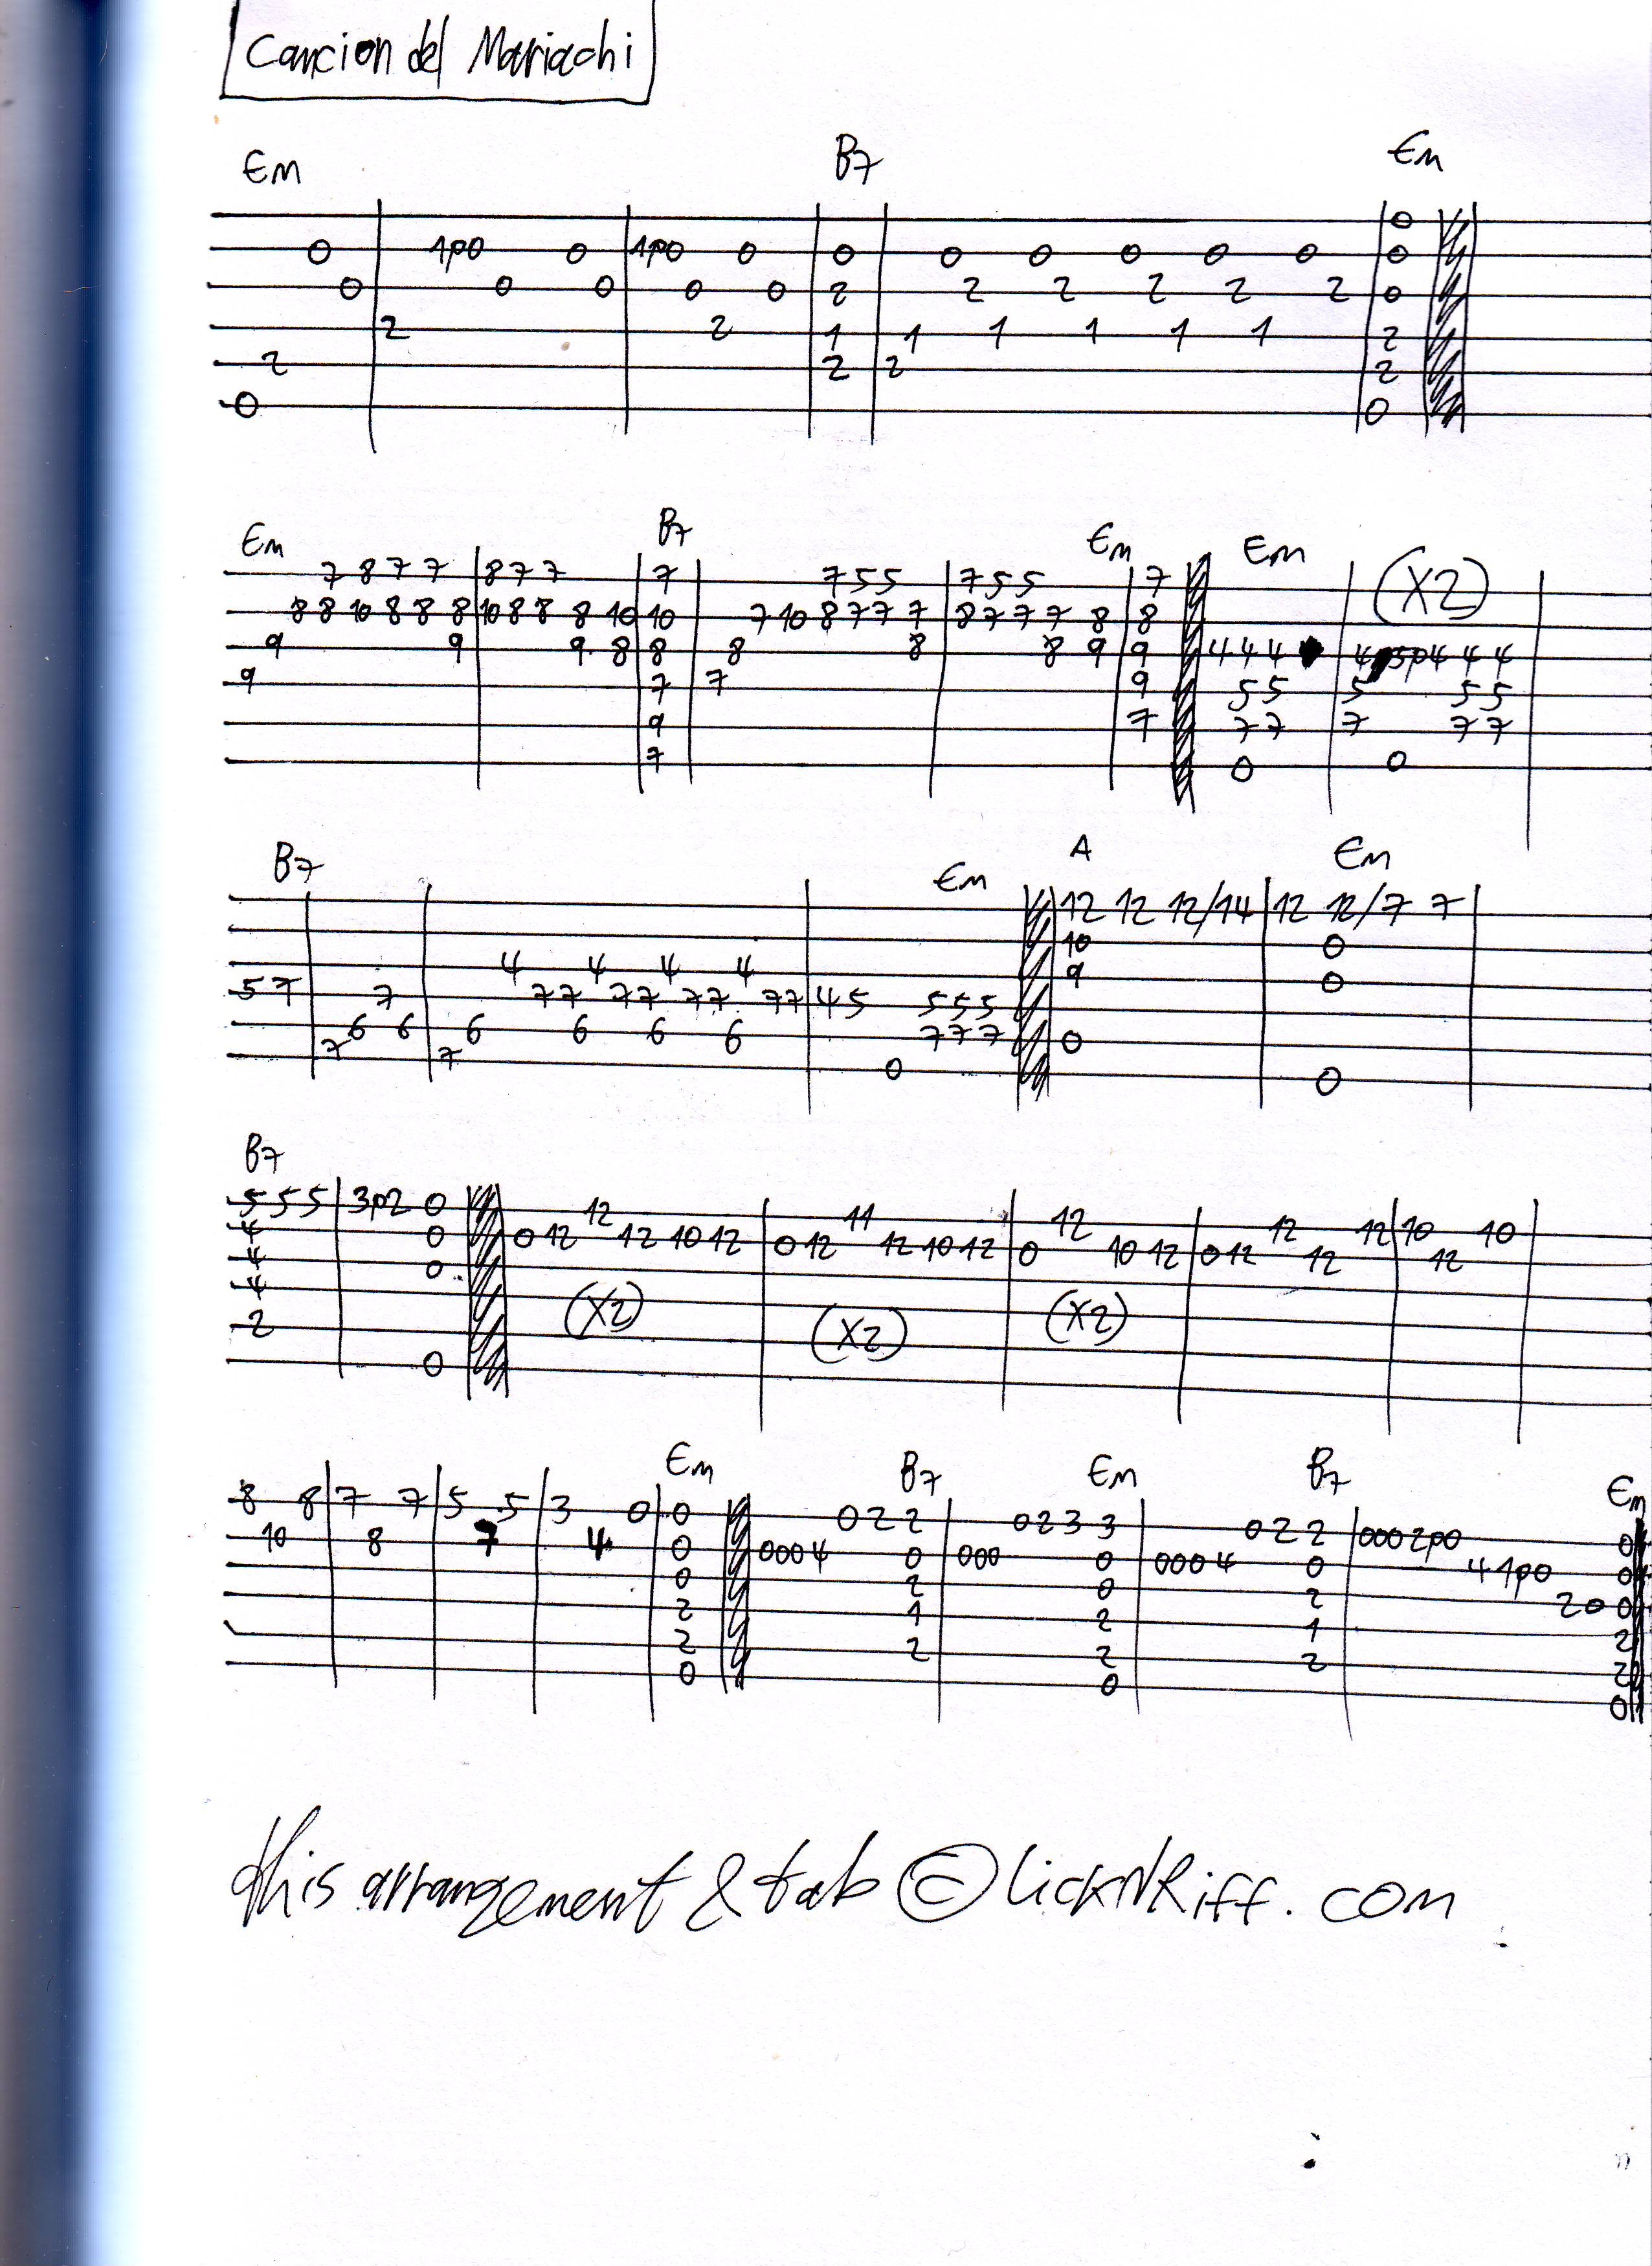 Cancion del Mariachi
Em B7 Em
0
0 1p0 0 1p0 0 0 0 0 0 0 0 0
0 0 0 0 0 2 2 2 2 2 2 0
2 2 1 1 1 1 1 1 2
2 2 2 2
0 0
Em B7 Em Em
7 8 7 7 8 7 7 7 7 5 5 7 5 5 7 (X2)
8 8 10 8 8 8 10 8 8 8 10 10 7 10 8 7 7 7 8 7 7 7 8 8
9 9 9 8 8 8 8 8 9 9 4 4 4 4 5p4 4 4
9 7 7 9 5 5 5 5 5
9 7 7 7 7 7 7
7 0 0
B7 Em A Em
12 12 12/14 12 12/7 7
10 0
4 4 4 4 9 0
5 7 7 7 7 7 7 7 7 7 7 4 5 5 5 5
6 6 6 6 6 6 7 7 7 0
7 7 0 0
B7
5 5 5 3p2 0 12 11 12 12 12 10 10
4 0 0 12 12 10 12 0 12 12 10 12 0 10 12 0 12 12 12
4 0
4 (X2) (X2) (X2)
2
0
Em B7 Em B7 Em
8 8 7 7 5 5 3 0 0 0 2 2 0 2 3 3 0 2 2 0 0 0 2p0 0
10 8 7 4 0 0 0 0 4 0 0 0 0 0 0 0 0 4 0 4 1p0 0
0 2 0 2 2 0 0
2 1 2 1 2
2 2 2 2 2
0 0 0
this arrangement & tab © lickNRiff.com